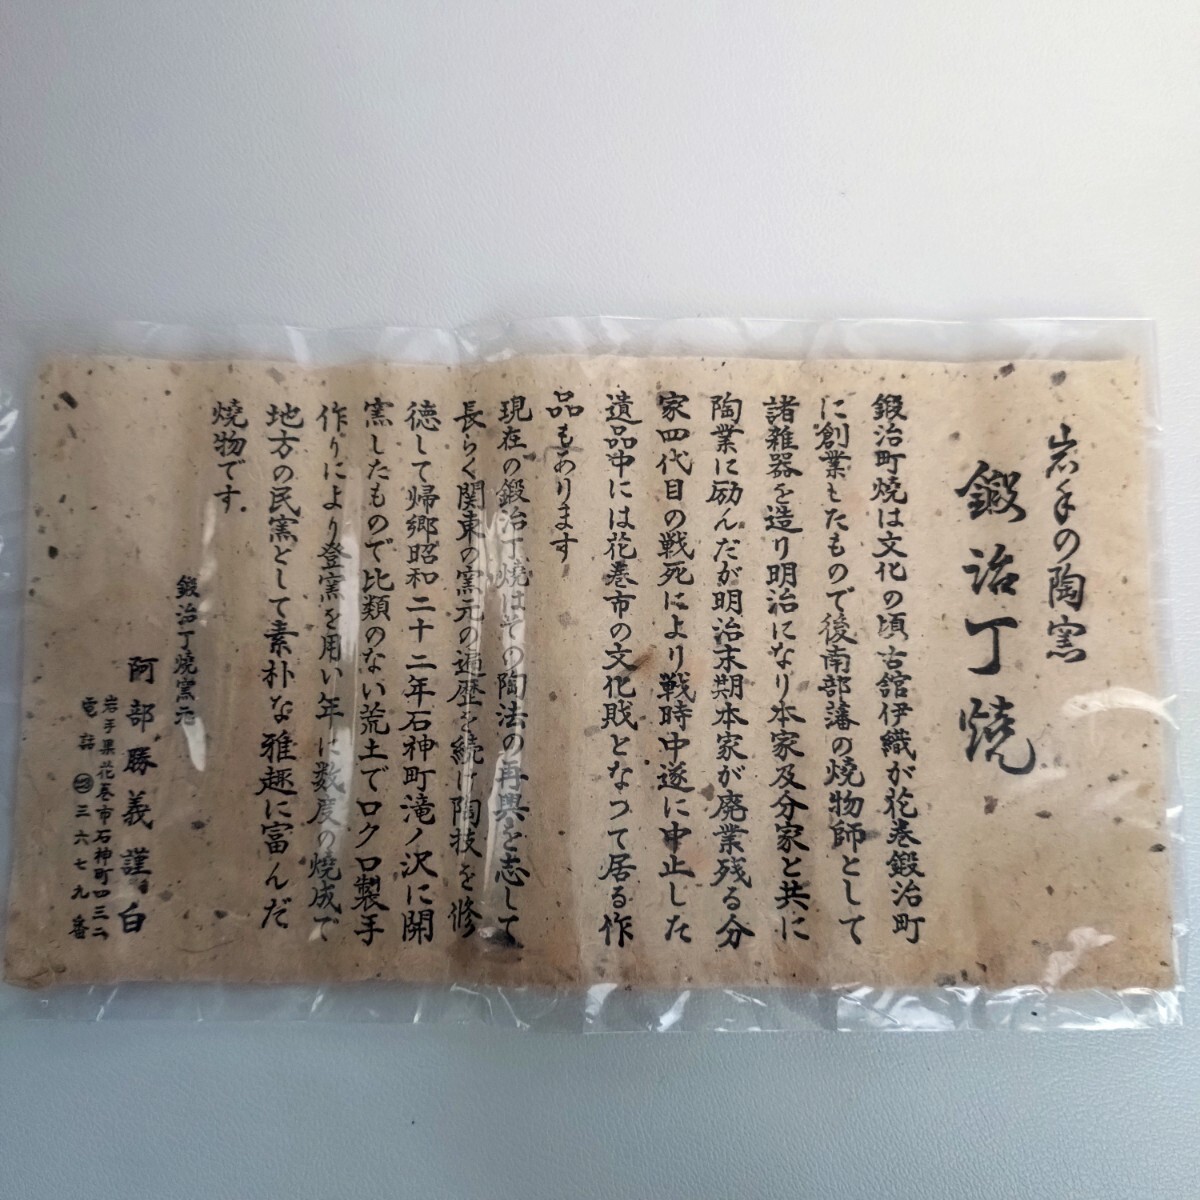 岩手の陶窯
鍛治丁焼
鍛治町焼は文化の頃古舘伊織が花巻鍛治町
に創業したもので後南部藩の焼物師として
諸雑器を造り明治になり本家及分家と共に
陶業に励んだが明治末期本家が廃業残る分
家四代目の戦死により戦時中遂に中止した
遺品中には花巻市の文化財となつて居る作
品もあります
現在の鍛治丁焼はその陶法の再興を志して
長らく関東の窯元の遍歴を続け陶技を修
徳して帰郷昭和二十二年石神町滝ノ沢に開
窯したもので比類のない荒土でロクロ製手
作りにより登窯を用い年に数度の焼成で
地方の民窯として素朴な雅趣に富んだ
焼物です.
鍛治丁焼窯元
阿部勝義謹白
岩手県花巻市石神町四三二
電話 三六七九番